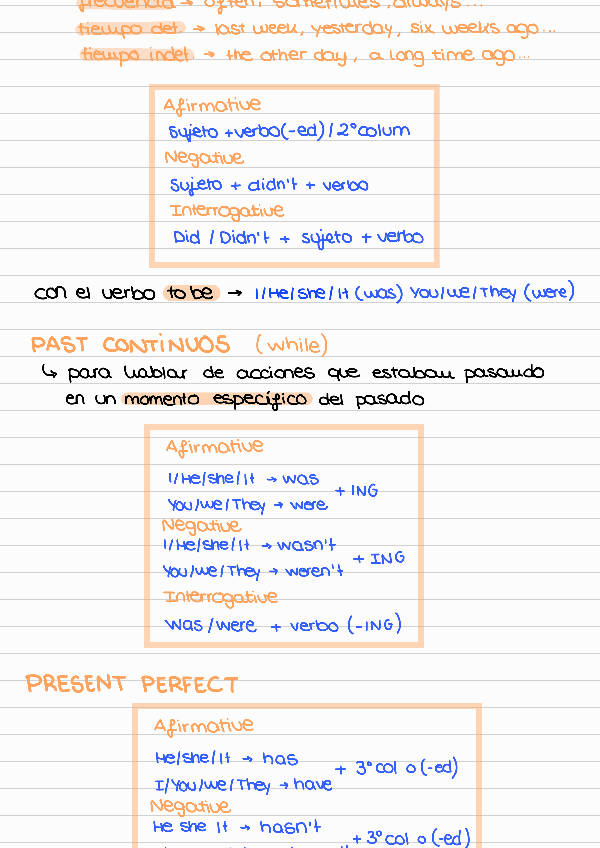 frecuencia → often, sometimes, always...
tiempo det → last week, yesterday, six weeks ago...
tiempo indet → the other day, a long time ago...
Afirmative
Sujeto +verbo(-ed)/2°colum
Negative
Sujeto + didn't + verbo
Interrogative
Did / Didn't + sujeto + verbo
con el verbo to be → I/He/she/It (was) You/we/They (were)
PAST CONTINUOS (while)
↳ para hablar de acciones que estaban pasando
en un momento específico del pasado
Afirmative
I/He/she/it → was
+ ING
You/we/They → were
Negative
I/He/she/It → wasn't
+ ING
You/we/They → weren't
Interrogative
Was/were + verbo (-ING)
PRESENT PERFECT
Afirmative
He/she/It → has
+ 3°col o (-ed)
I/You/we/They → have
Negative
He she It → hasn't
+ 3°col o (-ed)